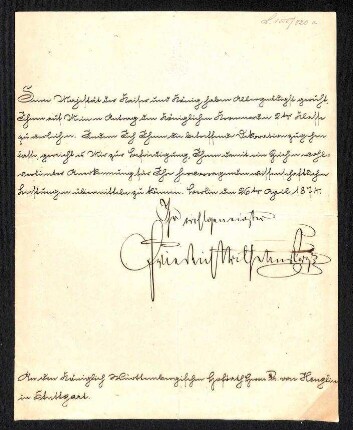 Seine Majestät der Kaiser und König haben Allergnädigst geruht,
Ihnen auf Meinen Antrag den Königlichen Kronenorden 2ter Klasse
zu verleihen. Indem Ich Ihnen die betreffende Dekoration zugehen
lasse, gereicht es Mir zur Befriedigung, Ihnen damit ein Zeichen wohl-
verdienter Anerkennung für Ihre hervorragenden wissenschaftlichen
Leistungen übermitteln zu können. Berlin den 26ter April 187
Ihr wohlgeneigter
Friedrich Wilhelm
An den Königlich Württembergischen Hofrath Herrn Dr. von Heuglin
in Stuttgart.